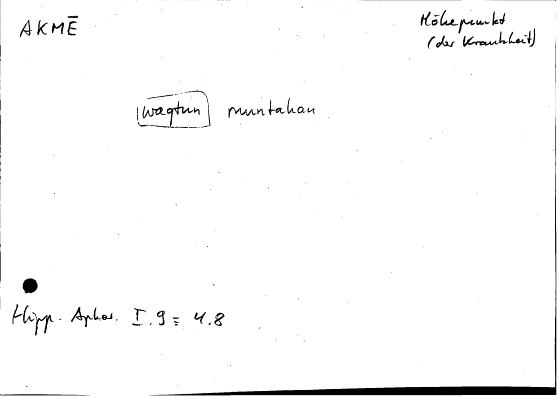 AKMĒ
Höhepunkt
(der Krankheit)
waqtun muntahan
Hipp. Aphor. I.9 = 4.8